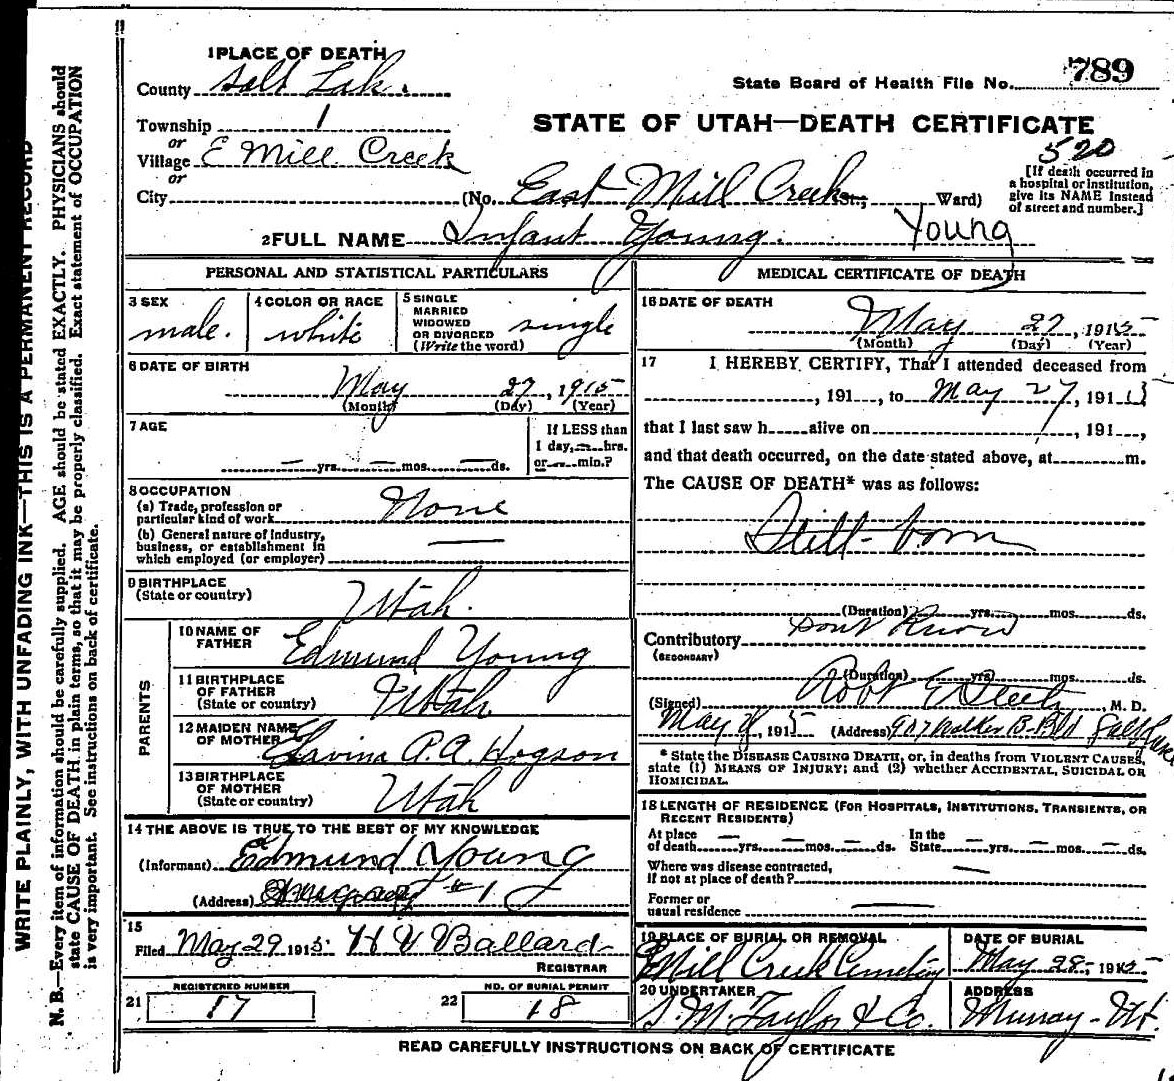 1 PLACE OF DEATH
County Salt Lake
State Board of Health File No. 789
Township 1
or
Village E Mill Creek
or
City
STATE OF UTAH—DEATH CERTIFICATE
520
(No. East Mill Creek St.; Ward)
[If death occurred in
a hospital or institution,
give its NAME instead
of street and number.]
2 FULL NAME Infant Young. Young
PERSONAL AND STATISTICAL PARTICULARS
3 SEX
male.
4 COLOR OR RACE
white
5 SINGLE
MARRIED
WIDOWED
OR DIVORCED
(Write the word)
single
6 DATE OF BIRTH
May 27, 1915
(Month) (Day) (Year)
7 AGE
— yrs. — mos. — ds.
If LESS than
1 day, — hrs.
or — min.?
8 OCCUPATION
(a) Trade, profession or
particular kind of work
None
(b) General nature of industry,
business, or establishment in
which employed (or employer) —
9 BIRTHPLACE
(State or country)
Utah.
PARENTS
10 NAME OF
FATHER
Edmund Young
11 BIRTHPLACE
OF FATHER
(State or country)
Utah
12 MAIDEN NAME
OF MOTHER
Lavina P.A. Hogson
13 BIRTHPLACE
OF MOTHER
(State or country)
Utah
14 THE ABOVE IS TRUE TO THE BEST OF MY KNOWLEDGE
(Informant) Edmund Young
(Address) # 1
15
Filed May 29 1915. H V Ballard
REGISTRAR
21 REGISTERED NUMBER
17
22 NO. OF BURIAL PERMIT
18
MEDICAL CERTIFICATE OF DEATH
16 DATE OF DEATH
May 27, 1915
(Month) (Day) (Year)
17 I HEREBY CERTIFY, That I attended deceased from
, 191 , to May 27, 1915
that I last saw h alive on , 191 ,
and that death occurred, on the date stated above, at m.
The CAUSE OF DEATH* was as follows:
Still-born
(Duration) yrs. mos. ds.
Contributory Dont Know
(SECONDARY)
(Duration) yrs. mos. ds.
(Signed) Robt E Steele, M. D.
May , 1915 (Address) 907 Walker B. Bld Salt Lake
* State the DISEASE CAUSING DEATH, or, in deaths from VIOLENT CAUSES,
state (1) MEANS OF INJURY; and (2) whether ACCIDENTAL, SUICIDAL OR
HOMICIDAL.
18 LENGTH OF RESIDENCE (FOR HOSPITALS, INSTITUTIONS, TRANSIENTS, OR
RECENT RESIDENTS)
At place
of death — yrs. — mos. — ds.
In the
State — yrs. — mos. — ds.
Where was disease contracted,
if not at place of death? —
Former or
usual residence —
19 PLACE OF BURIAL OR REMOVAL
E Mill Creek Cemetery
DATE OF BURIAL
May 28 - 1915
20 UNDERTAKER
S. M. Taylor & Co.
ADDRESS
Murray - Ut.
READ CAREFULLY INSTRUCTIONS ON BACK OF CERTIFICATE
WRITE PLAINLY, WITH UNFADING INK—THIS IS A PERMANENT RECORD
N. B.—Every item of information should be carefully supplied. AGE should be stated EXACTLY. PHYSICIANS should
state CAUSE OF DEATH in plain terms, so that it may be properly classified. Exact statement of OCCUPATION
is very important. See instructions on back of certificate.